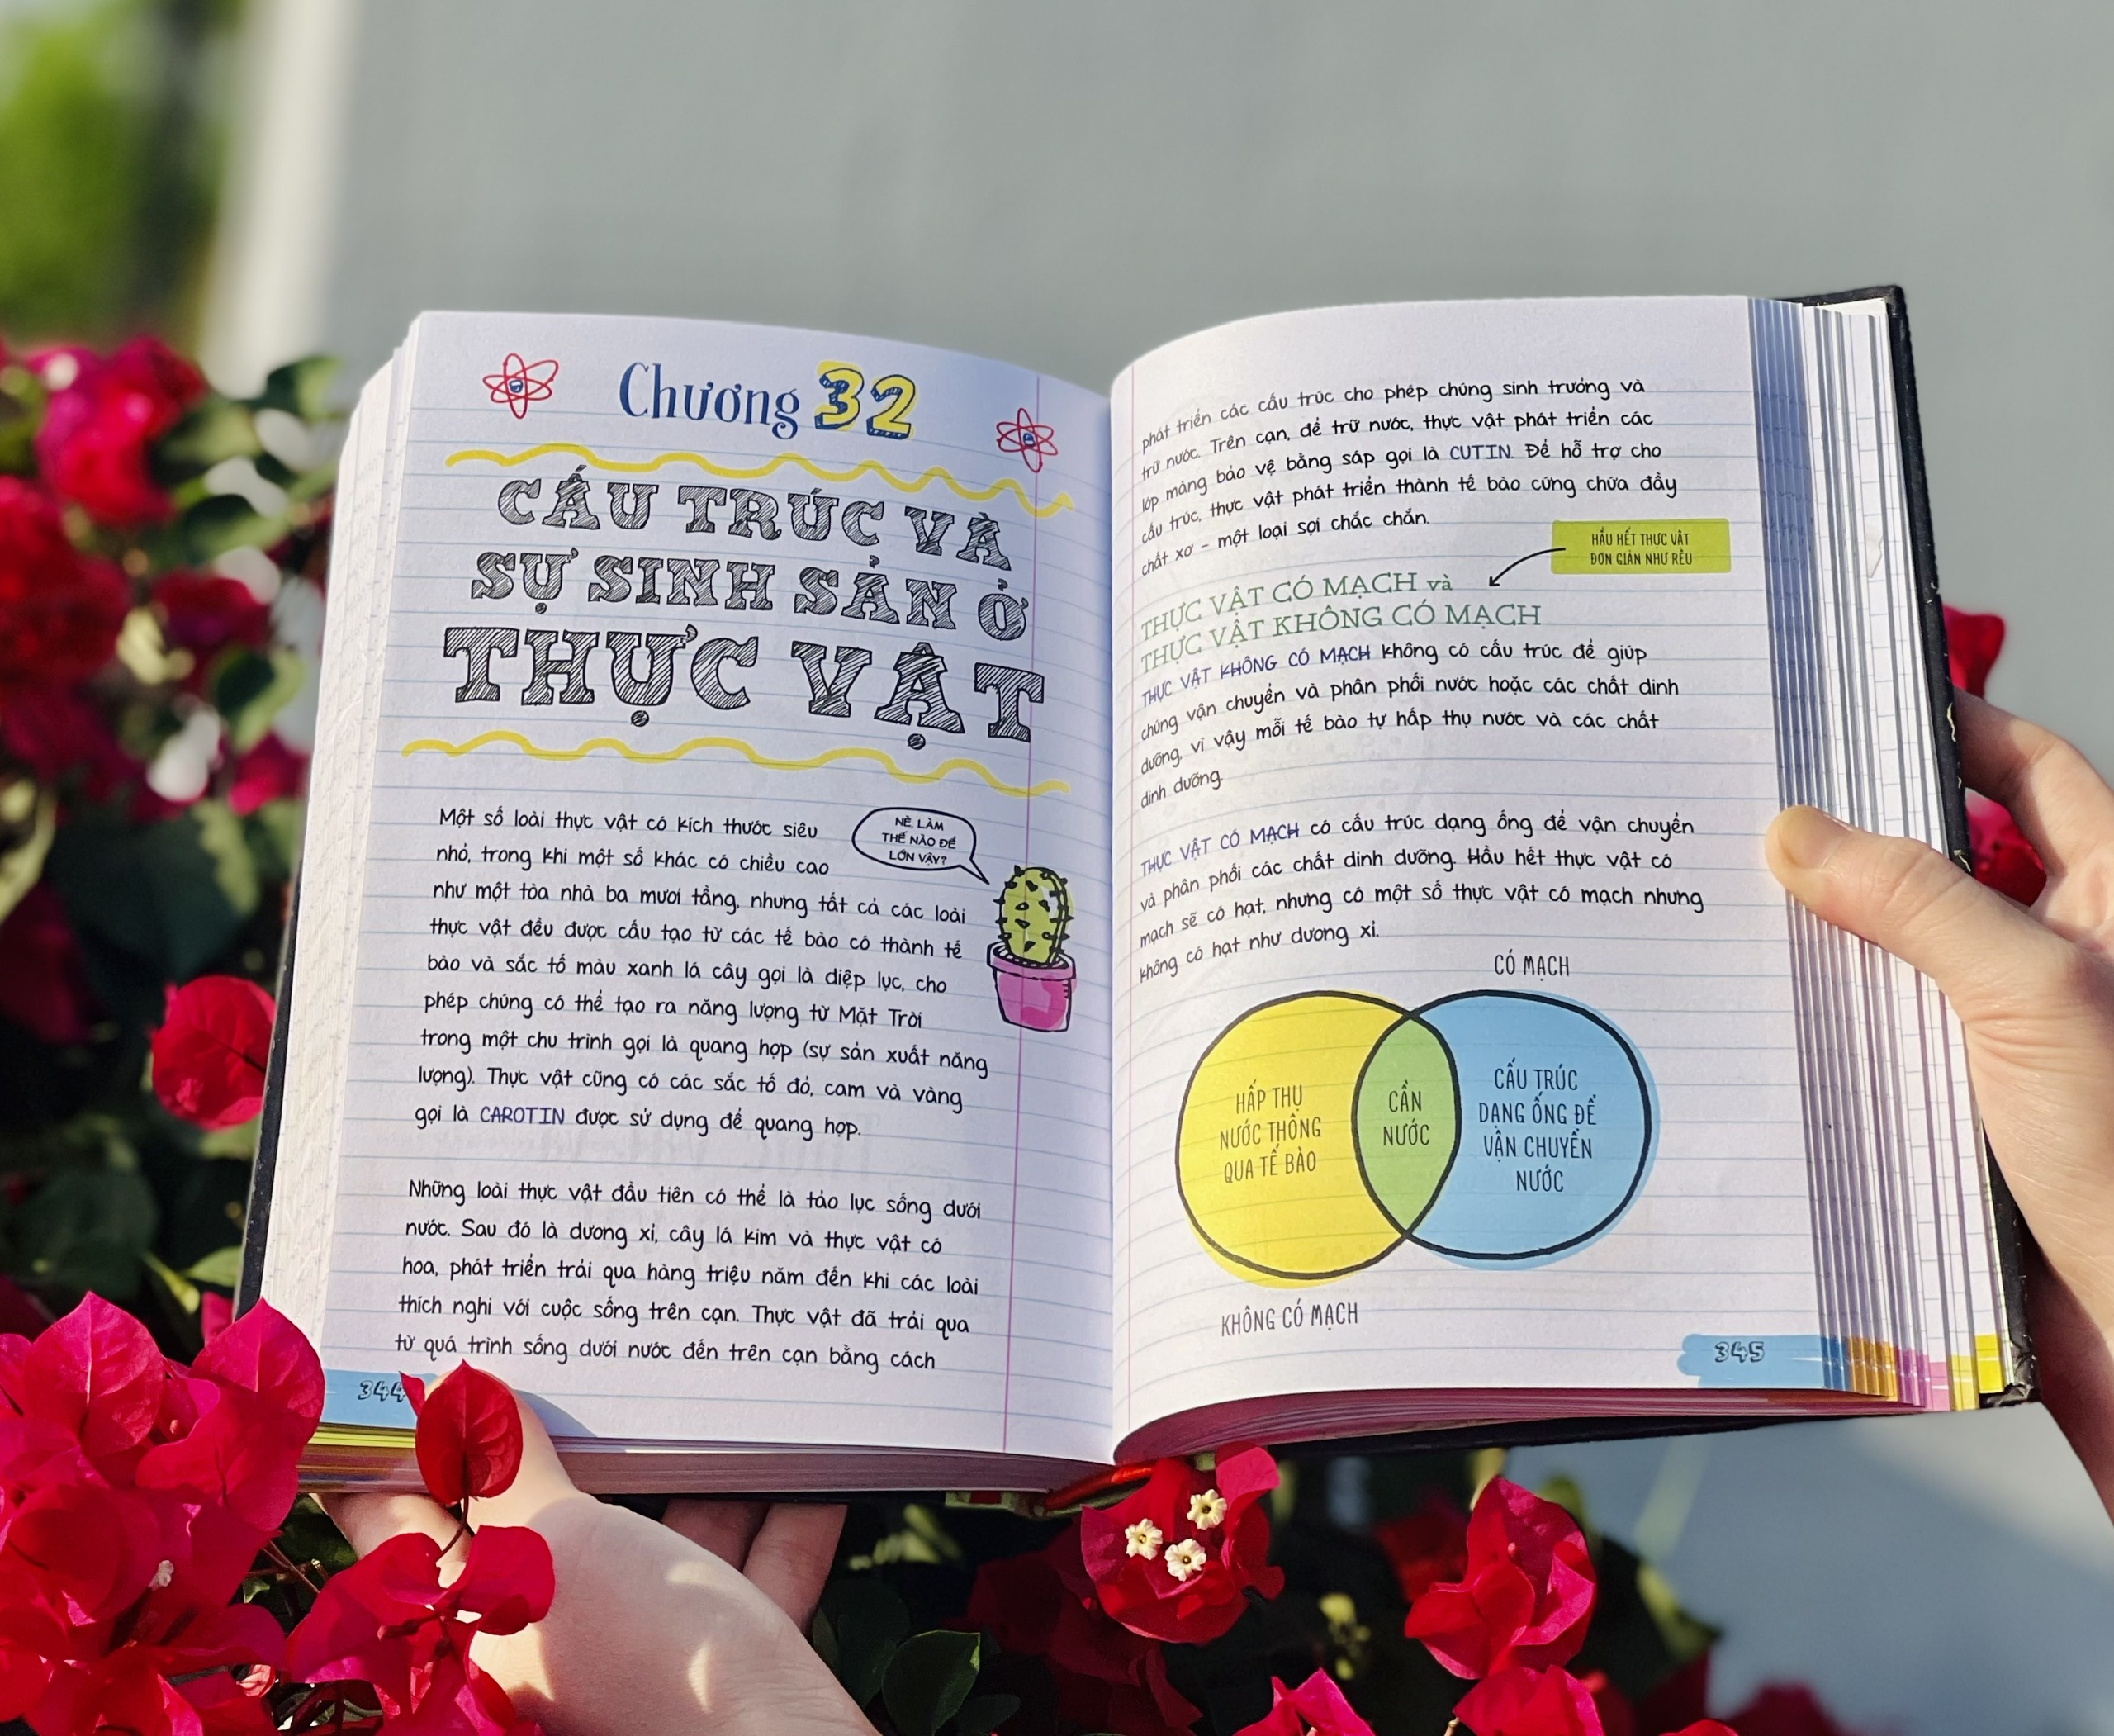 Chương 32
CẤU TRÚC VÀ
SỰ SINH SẢN Ở
THỰC VẬT
Một số loài thực vật có kích thước siêu
nhỏ, trong khi một số khác có chiều cao
như một tòa nhà ba mươi tầng, nhưng tất cả các loài
thực vật đều được cấu tạo từ các tế bào có thành tế
bào và sắc tố màu xanh lá cây gọi là diệp lục, cho
phép chúng có thể tạo ra năng lượng từ Mặt Trời
trong một chu trình gọi là quang hợp (sự sản xuất năng
lượng). Thực vật cũng có các sắc tố đỏ, cam và vàng
gọi là CAROTIN được sử dụng để quang hợp.
NÈ, LÀM
THẾ NÀO ĐỂ
LỚN VẬY?
Những loài thực vật đầu tiên có thể là tảo lục sống dưới
nước. Sau đó là dương xỉ, cây lá kim và thực vật có
hoa, phát triển trải qua hàng triệu năm đến khi các loài
thích nghi với cuộc sống trên cạn. Thực vật đã trải qua
từ quá trình sống dưới nước đến trên cạn bằng cách
344
phát triển các cấu trúc cho phép chúng sinh trưởng và
trữ nước. Trên cạn, để trữ nước, thực vật phát triển các
lớp màng bảo vệ bằng sáp gọi là CUTIN. Để hỗ trợ cho
cấu trúc, thực vật phát triển thành tế bào cứng chứa đầy
chất xơ – một loại sợi chắc chắn.
HẦU HẾT THỰC VẬT
ĐƠN GIẢN NHƯ RÊU
THỰC VẬT CÓ MẠCH và
THỰC VẬT KHÔNG CÓ MẠCH
THỰC VẬT KHÔNG CÓ MẠCH không có cấu trúc để giúp
chúng vận chuyển và phân phối nước hoặc các chất dinh
dưỡng, vì vậy mỗi tế bào tự hấp thụ nước và các chất
dinh dưỡng.
THỰC VẬT CÓ MẠCH có cấu trúc dạng ống để vận chuyển
và phân phối các chất dinh dưỡng. Hầu hết thực vật có
mạch sẽ có hạt, nhưng có một số thực vật có mạch nhưng
không có hạt như dương xỉ.
CÓ MẠCH
HẤP THỤ
NƯỚC THÔNG
QUA TẾ BÀO
CẦN
NƯỚC
CẤU TRÚC
DẠNG ỐNG ĐỂ
VẬN CHUYỂN
NƯỚC
KHÔNG CÓ MẠCH
345